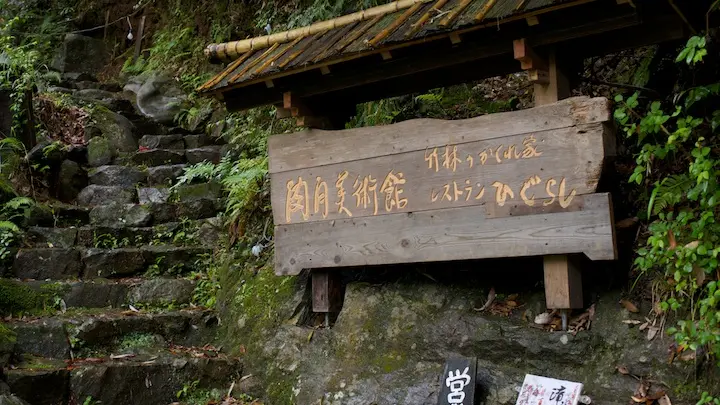 陶月美術館
竹林のかくれ家
レストラン ひぐらし
営